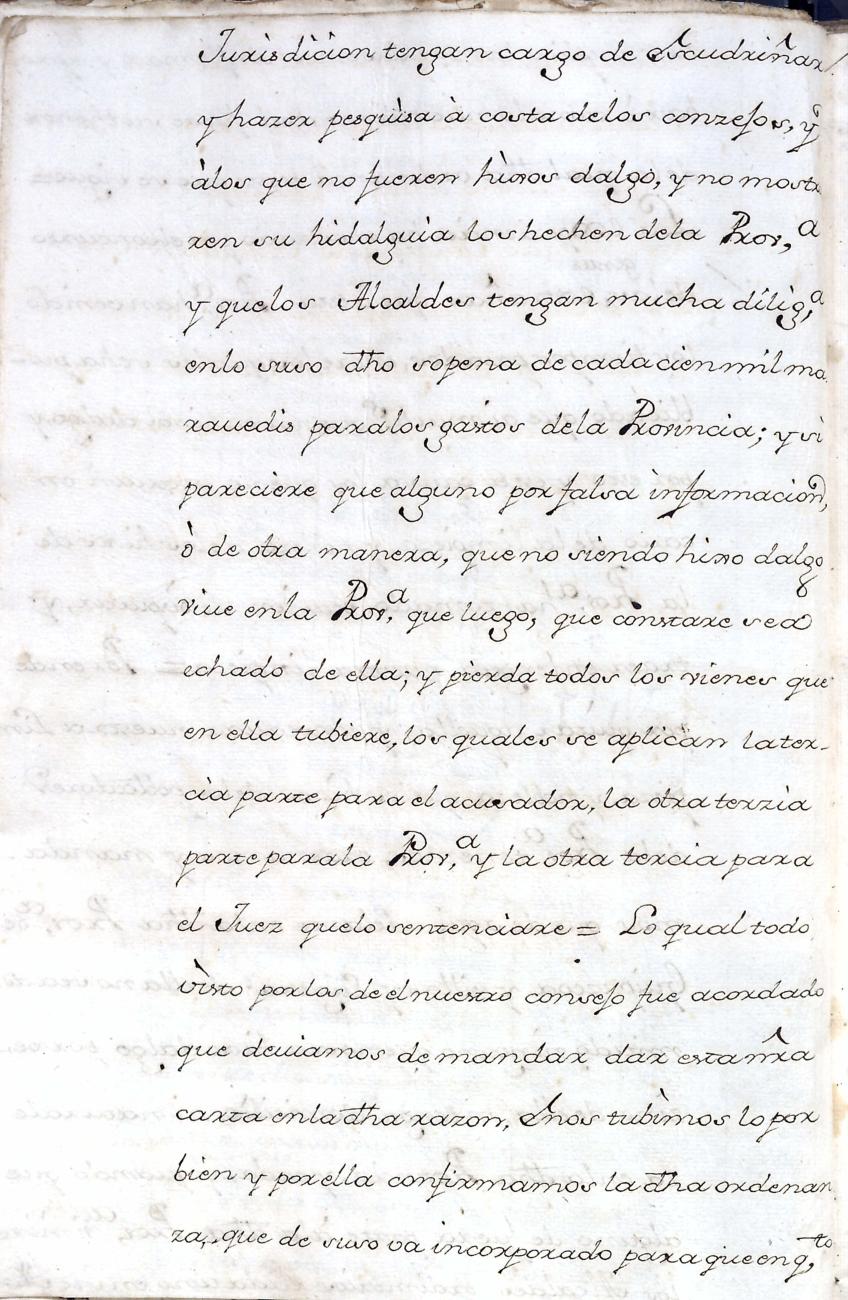 Jurisdicion tengan cargo de Escudriñar
y hazer pesquisa à costa delos conzejos, y
àlos que no fueren hixos dalgo, y no mostra
ren su hidalguia los hechen dela Prov,ª
y quelos Alcaldes tengan mucha dilig,ª
enlo suso dho sopena de cada cien mil ma
rauedis paralos gastos dela Provincia; y si
pareciere que alguno por falsa informacion,
ò de otra manera, que no siendo hixo dalgo
viue enla Prov,ª que luego, que constare sea
echado de ella; y pierda todos los vienes que
en ella tubiere, los quales se aplican la ter-
cia parte para el acusador, la otra terzia
parte parala Prov,ª y la otra tercia para
el Juez quelo sentenciare = Lo qual todo
visto porlos de el nuestro consejo fue acordado
que deuiamos de mandar dar esta nr̃a
carta enla dha razon, Enos tubimos lo por
bien y por ella confirmamos la dha ordenan
za, que de suso va incorporado para que en q,to